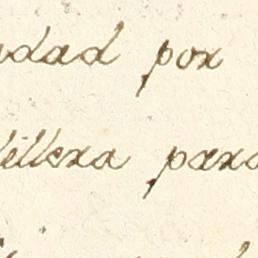 udad por
illera para